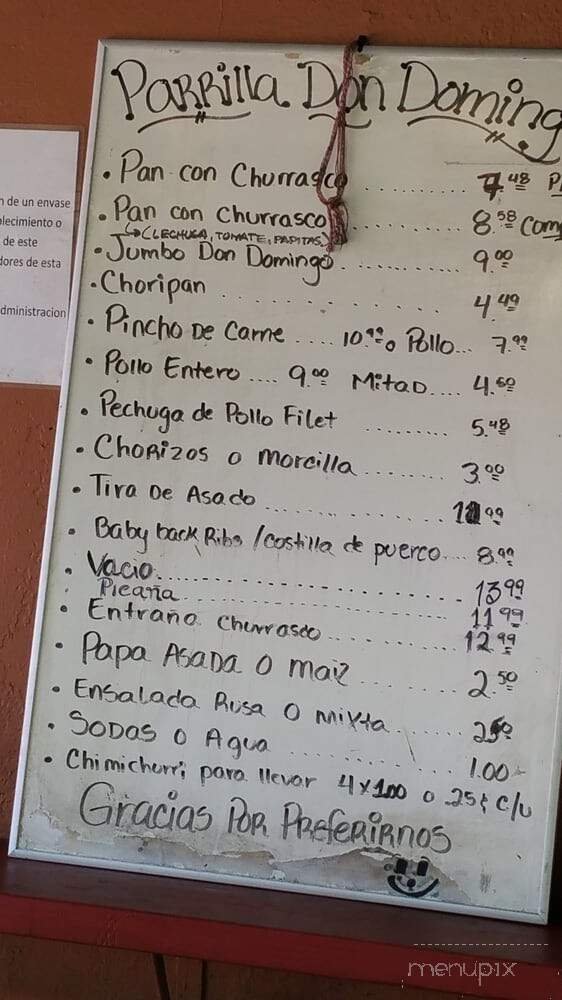 Parrilla Don Doming
n de un envase
lecimiento o
de este
dores de esta
dministracion
• Pan con Churrasco .......... 7.48
• Pan con Churrasco .......... 8.58 Com
↳ (LECHUGA, TOMATE, PAPITAS)
• Jumbo Don Domingo .......... 9.00
• Choripan .......... 4.49
• Pincho De Carne .... 10.99 o Pollo... 7.99
• Pollo Entero .... 9.00 Mitad .... 4.60
• Pechuga de Pollo Filet ......... 5.48
• Chorizos o morcilla ........ 3.00
• Tira De Asado ..........
• Baby back Ribs / costilla de puerco... 8.99
• Vacio .......... 13.99
• Picaña .......... 11.99
• Entraña churrasco .......... 12.99
• Papa Asada o maiz ........ 2.50
• Ensalada Rusa o mixta ....... 2.50
• Sodas o Agua .......... 1.00
• Chimichurri para llevar 4x1.00 o .25¢ c/u
Gracias Por Preferirnos
menupix